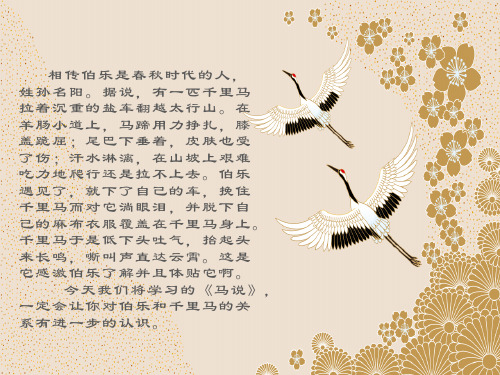 相传伯乐是春秋时代的人，
姓孙名阳。据说，有一匹千里马
拉着沉重的盐车翻越太行山。在
羊肠小道上，马蹄用力挣扎，膝
盖跪屈；尾巴下垂着，皮肤也受
了伤；汗水淋漓，在山坡上艰难
吃力地爬行还是拉不上去。伯乐
遇见了，就下了自己的车，挽住
千里马而对它淌眼泪，并脱下自
己的麻布衣服覆盖在千里马身上。
千里马于是低下头吐气，抬起头
来长鸣，嘶叫声直达云霄。这是
它感激伯乐了解并且体贴它啊。
今天我们将学习的《马说》，
一定会让你对伯乐和千里马的关
系有进一步的认识。